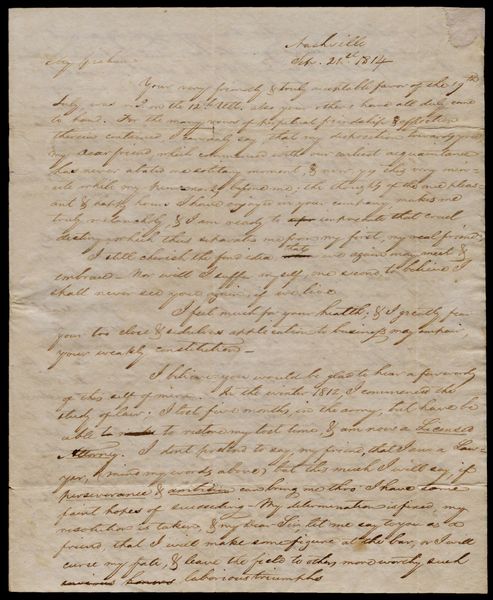 Nashville
21st 1814
Your very friendly & truly acceptable favor of the 19th
July was on the 12th Ult. also your others have all duly come
to hand. For the many vows of perpetual friendship & affection
therein contained I can only say that my disposition towards you
my dear friend which commenced with our earliest acquaintance
has never abated one solitary moment, & now, yes this very min-
ute while my pen moves before me, the thoughts of the once pleas-
ant & happy hours I have enjoyed in your company, makes me
truly melancholy, & I am ready to that cruel
destiny which thus separates me from my first, my real friend.
I still cherish the fond idea that we again may meet &
embrace. Nor will I suffer myself one second to believe I
shall never see you again, if we live.
I feel much for your health; & I greatly fear
your too close & sedulous application to business may impair
your weakly constitution—
I believe you would be glad to hear a few words
of this self of mine. In the winter 1812, I commenced the
study of law. I lost five months, in the army, but have been
able to to restore my lost time & am now a Licensed
Attorney. I don't pretend to say, my friend, that I am a Law-
yer, (mind my words above) but this much I will say, if
perseverance & ambition can bring me thro' I have some
faint hopes of succeeding. My determination is fixed, my
resolution is taken, & my Dear Sir, let me say to you as a
friend, that I will make some figure at the bar, or I will
curse my fate, & leave the field to others more worthy such
laborious triumphs